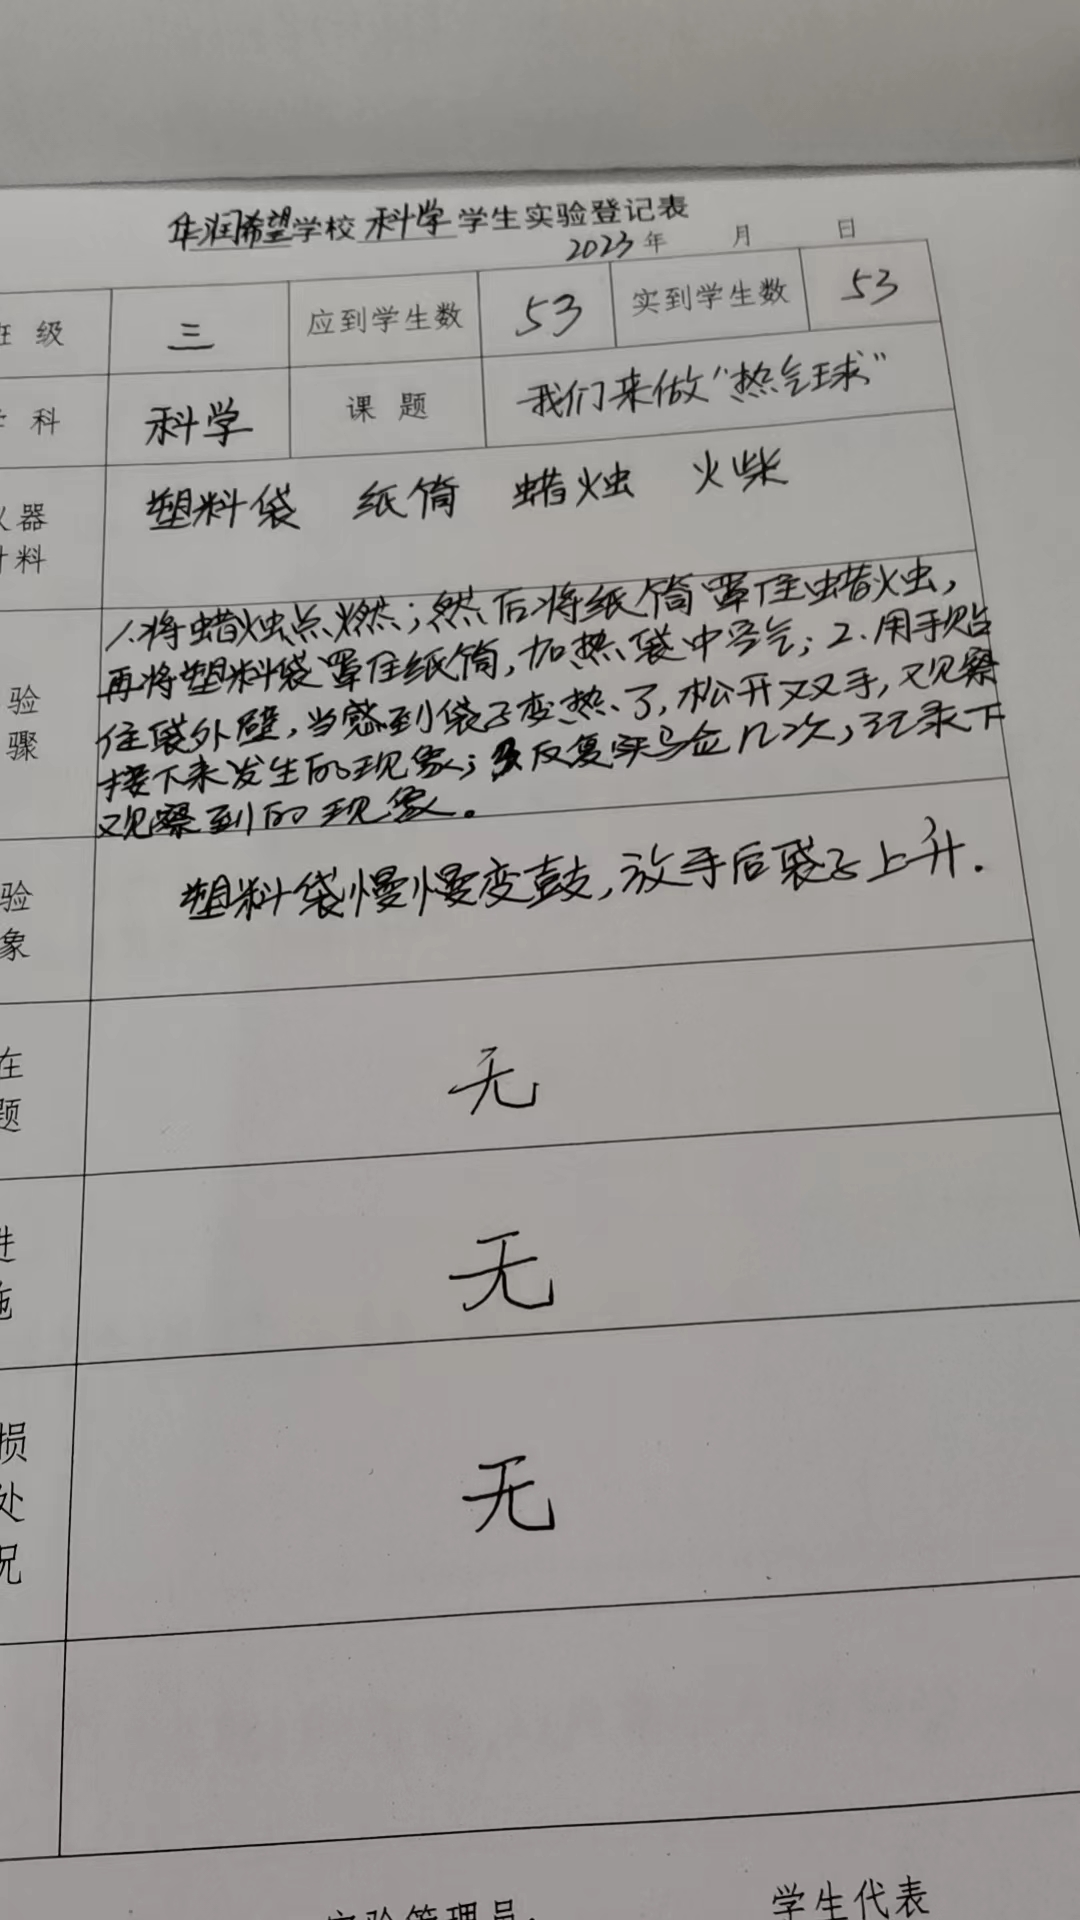 华润希望学校 科学 学生实验登记表
2023年 月 日
班级 三 应到学生数 53 实到学生数 53
学科 科学 课题 我们来做“热气球”
仪器 塑料袋 纸筒 蜡烛 火柴
材料
1.将蜡烛点燃;然后将纸筒罩住蜡烛,
再将塑料袋罩住纸筒,加热袋中空气;2.用手贴
验
住袋外壁,当感到袋子变热了,松开双手,观察
骤
接下来发生的现象;3.反复实验几次,记录下
观察到的现象。
验 塑料袋慢慢变鼓,放手后袋子上升.
象
在 无
题
进 无
施
损 无
处
况
实验管理员: 学生代表